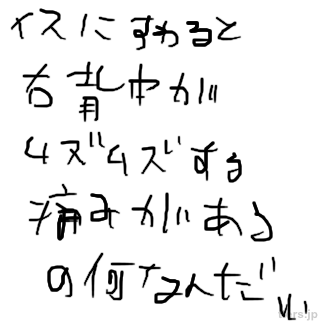 イスにすわると
右背中が
ムズムズする
痛みがある
の何なんだい